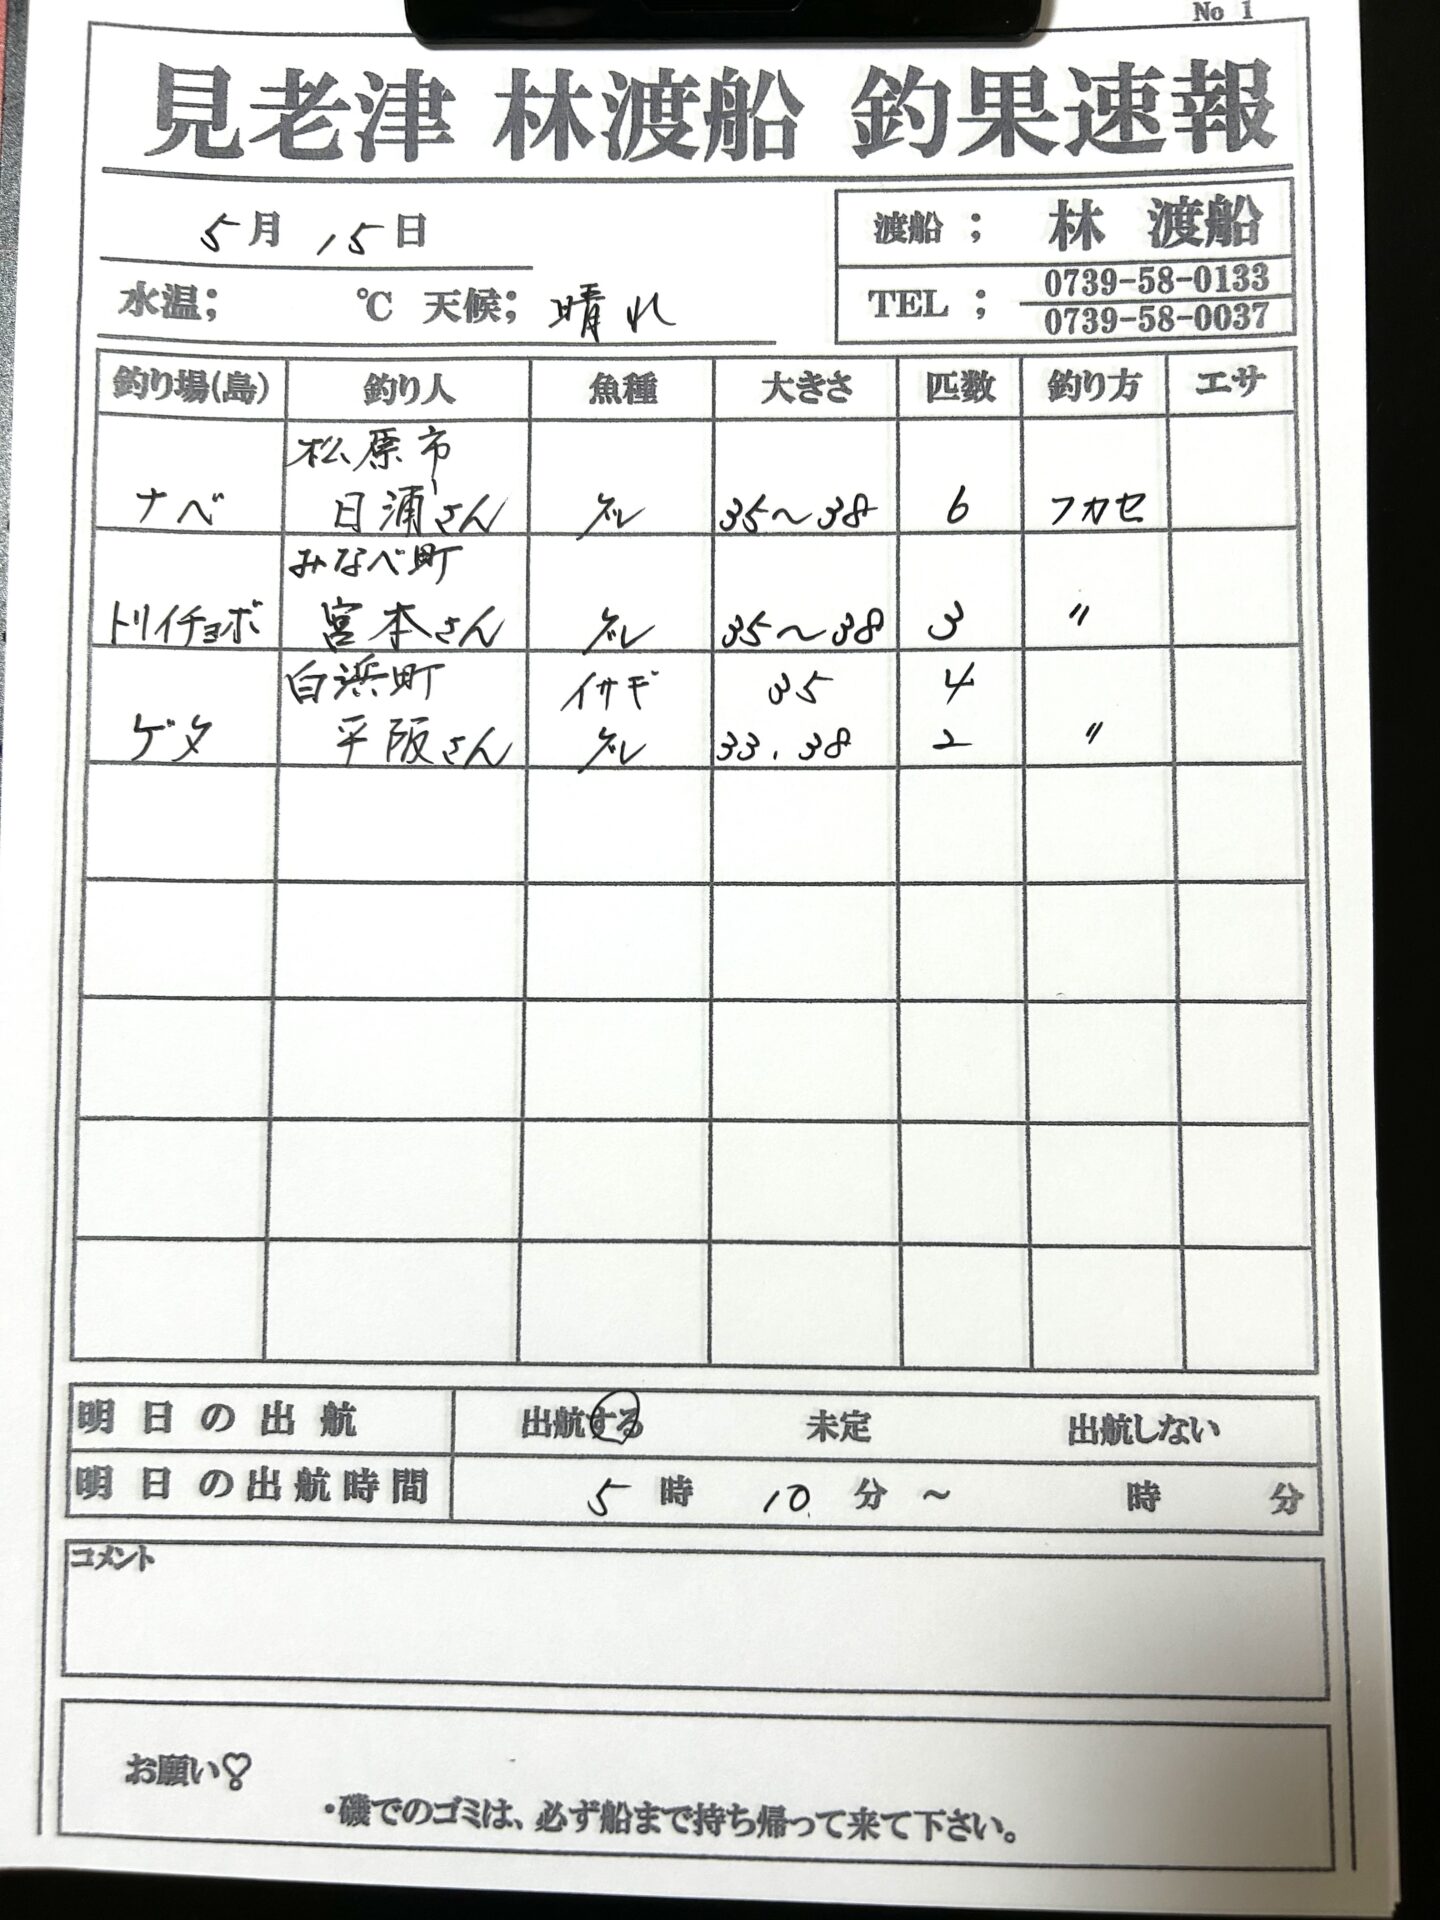 No 1
見老津 林渡船 釣果速報
5月 15日
渡船 ; 林 渡船
水温; ℃ 天候; 晴れ
TEL ; 0739-58-0133
0739-58-0037
釣り場(島) 釣り人 魚種 大きさ 匹数 釣り方 エサ
松原市
ナベ 日浦さん グレ 35〜38 6 フカセ
みなべ町
トリイチョボ 宮本さん グレ 35〜38 3 〃
白浜町 イサギ 35 4
ゲタ 平阪さん グレ 33.38 2 〃
明日の出航 出航する 未定 出航しない
明日の出航時間 5 時 10 分 ～ 時 分
コメント
お願い♡
・磯でのゴミは、必ず船まで持ち帰って来て下さい。